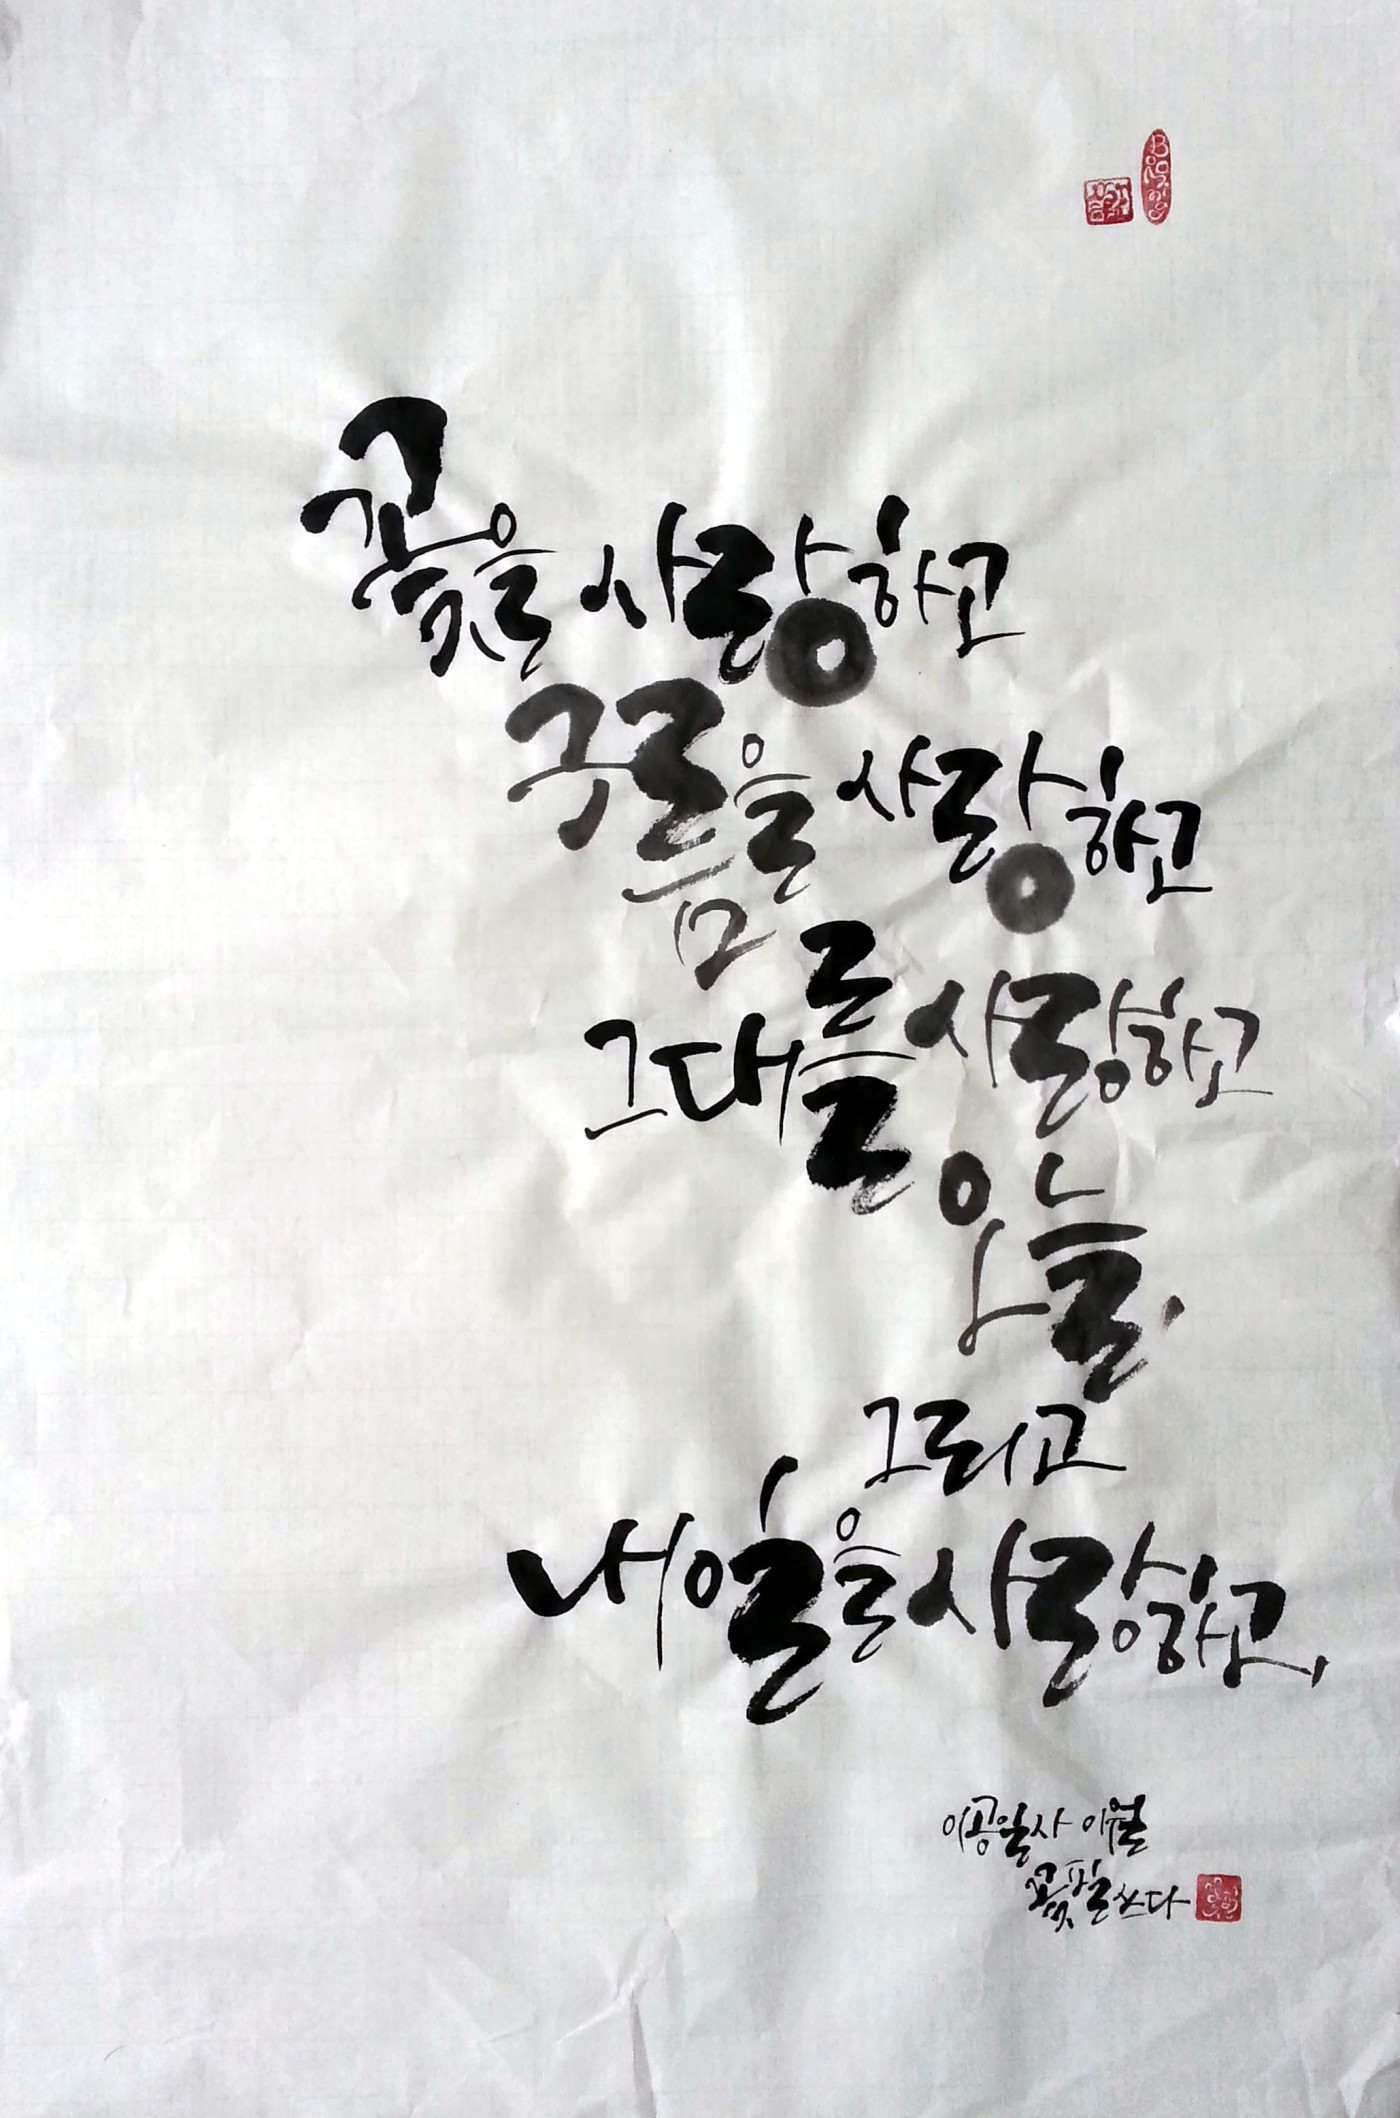 꽃을 사랑하고
구름을 사랑하고
그대를 사랑하고
오늘,
그리고
내일을 사랑하고,
이공일사 이월
꽃필 쓰다